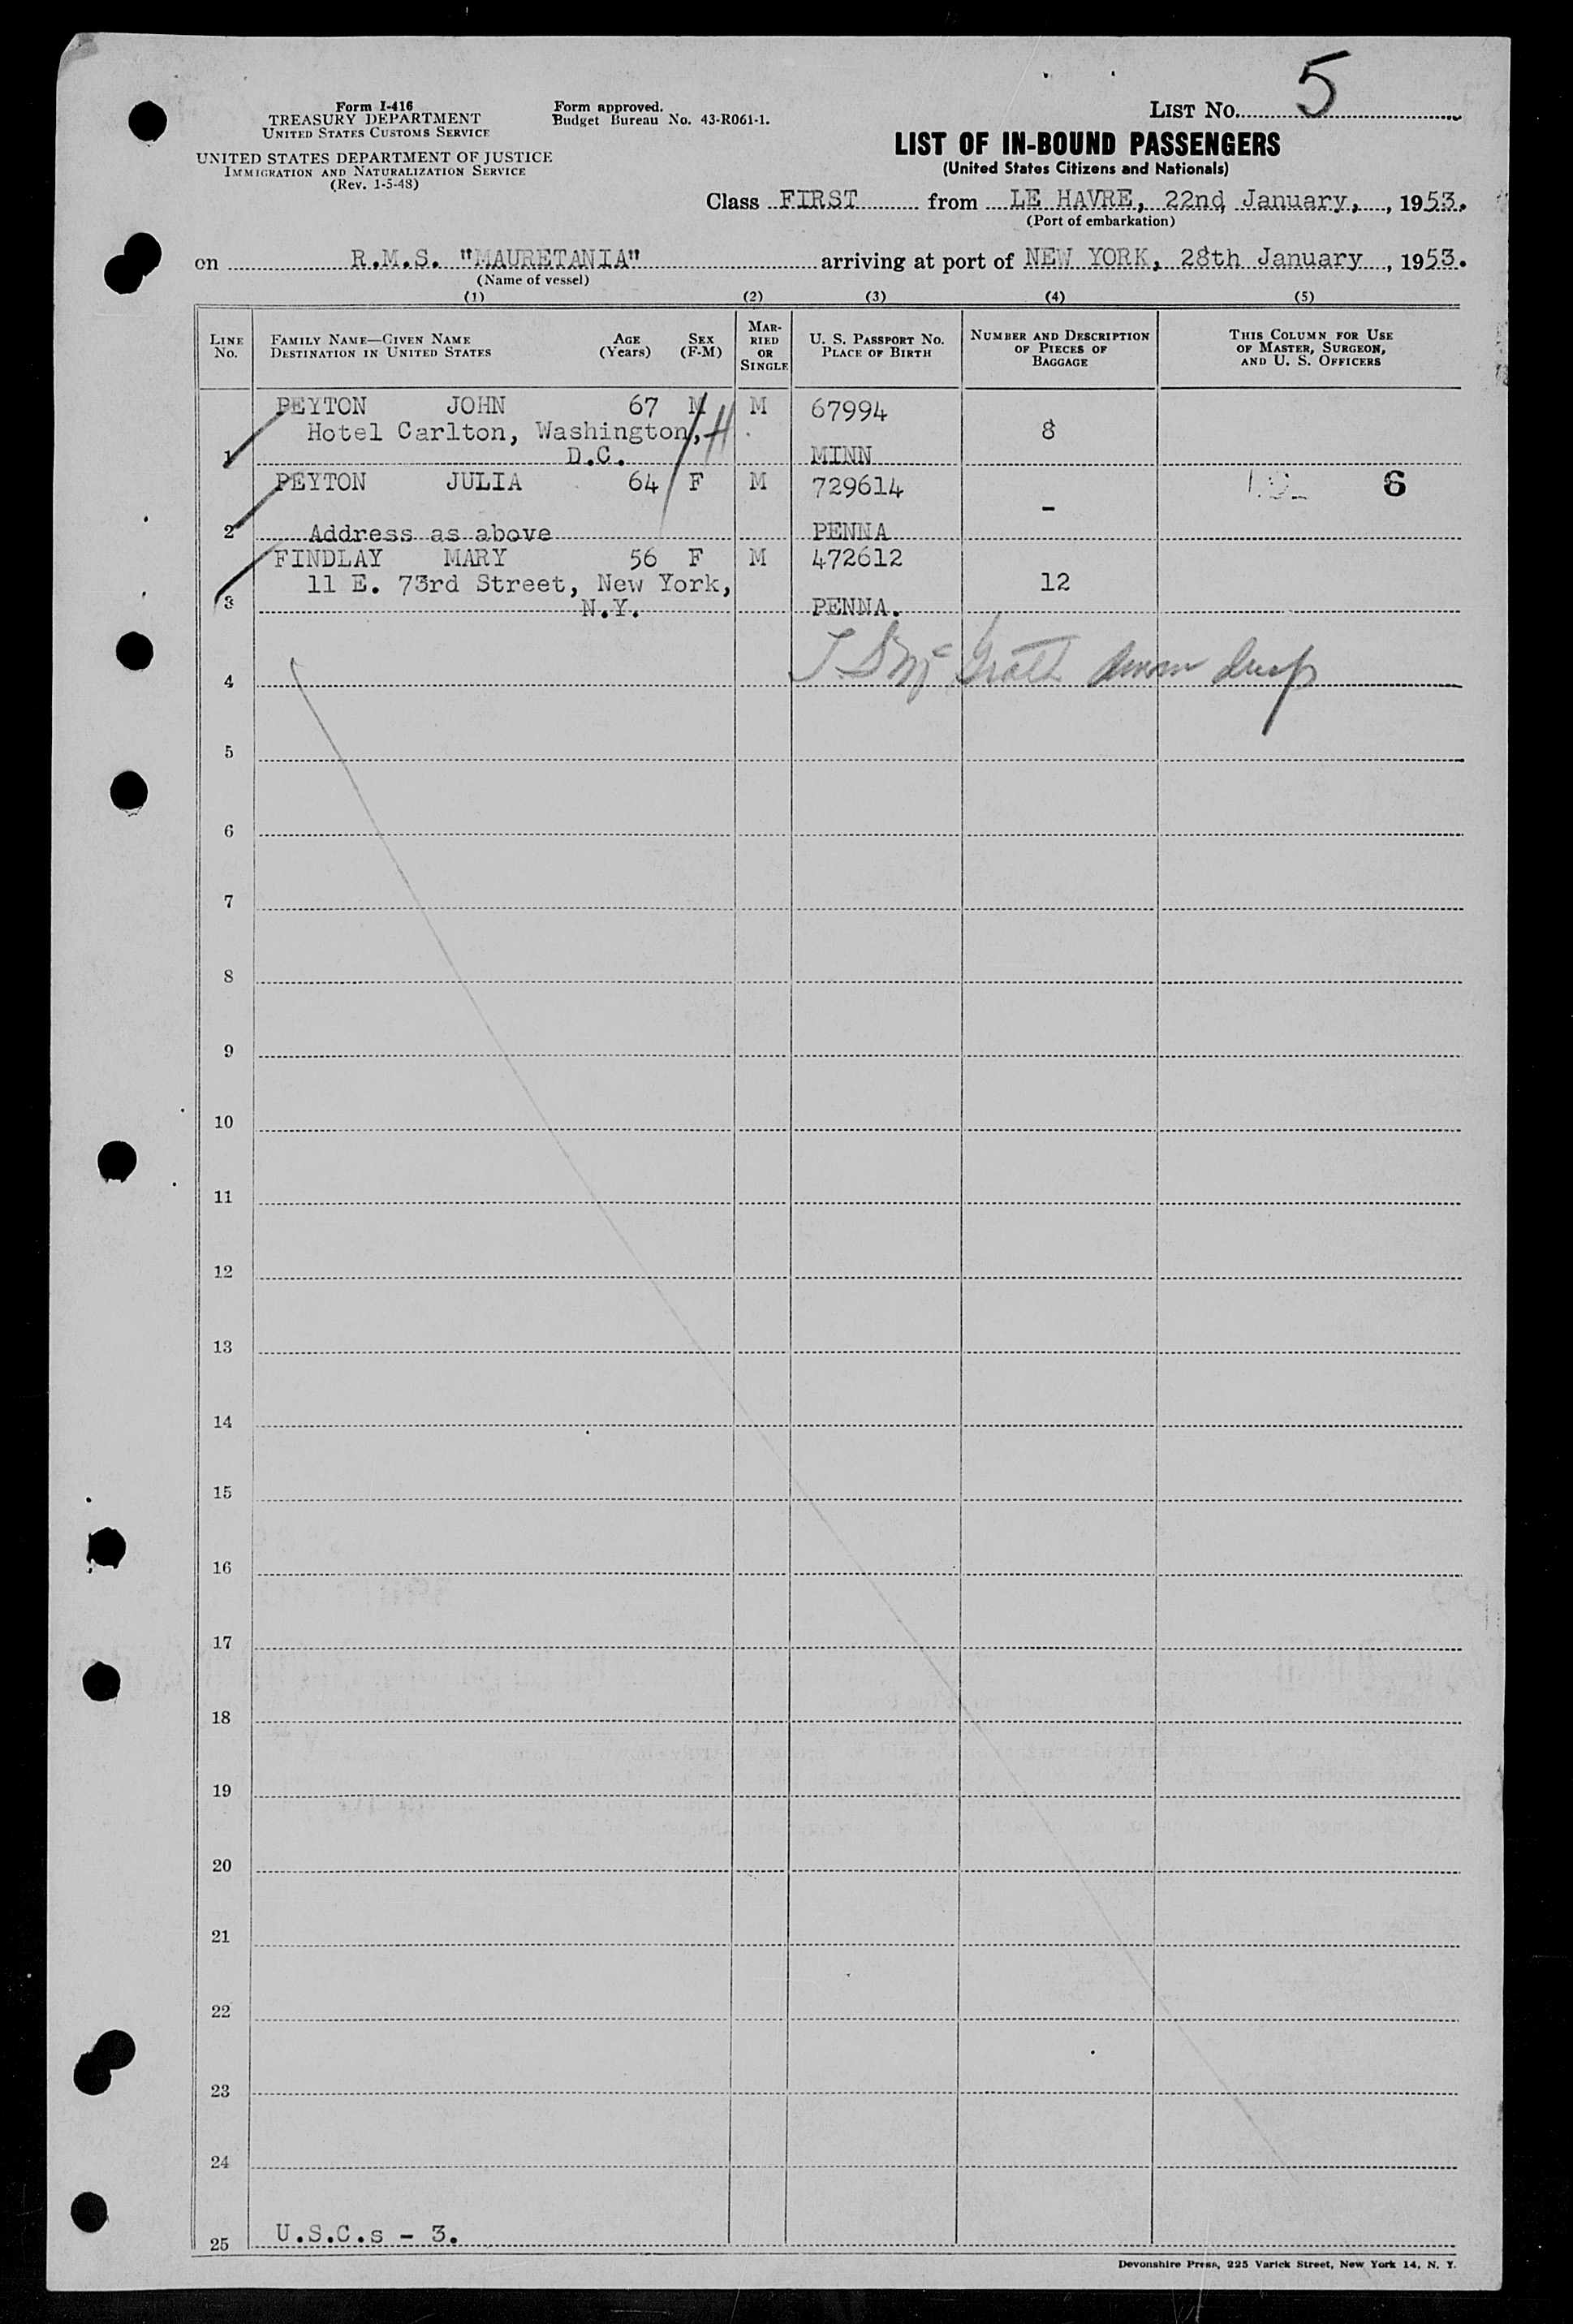 LIST No. 5
Form I-416
TREASURY DEPARTMENT
UNITED STATES CUSTOMS SERVICE
Form approved.
Budget Bureau No. 43-R061-1.
UNITED STATES DEPARTMENT OF JUSTICE
IMMIGRATION AND NATURALIZATION SERVICE
(Rev. 1-5-48)
LIST OF IN-BOUND PASSENGERS
(United States Citizens and Nationals)
Class FIRST from LE HAVRE, 22nd January, , 1953.
(Port of embarkation)
on R.M.S. "MAURETANIA" arriving at port of NEW YORK, 28th January , 1953.
(Name of vessel)
(1) (2) (3) (4) (5)
LINE No. FAMILY NAME—GIVEN NAME DESTINATION IN UNITED STATES AGE (Years) SEX (F-M) MARRIED OR SINGLE U. S. PASSPORT No. PLACE OF BIRTH NUMBER AND DESCRIPTION OF PIECES OF BAGGAGE THIS COLUMN FOR USE OF MASTER, SURGEON, AND U. S. OFFICERS
PEYTON JOHN 67 M M 67994
Hotel Carlton, Washington, 8
1 D.C. MINN
PEYTON JULIA 64 F M 729614 6
-
2 Address as above PENNA
FINDLAY MARY 56 F M 472612
11 E. 73rd Street, New York, 12
3 N.Y. PENNA.
4
5
6
7
8
9
10
11
12
13
14
15
16
17
18
19
20
21
22
23
24
25 U.S.C.s - 3.
Devonshire Press, 225 Varick Street, New York 14, N. Y.